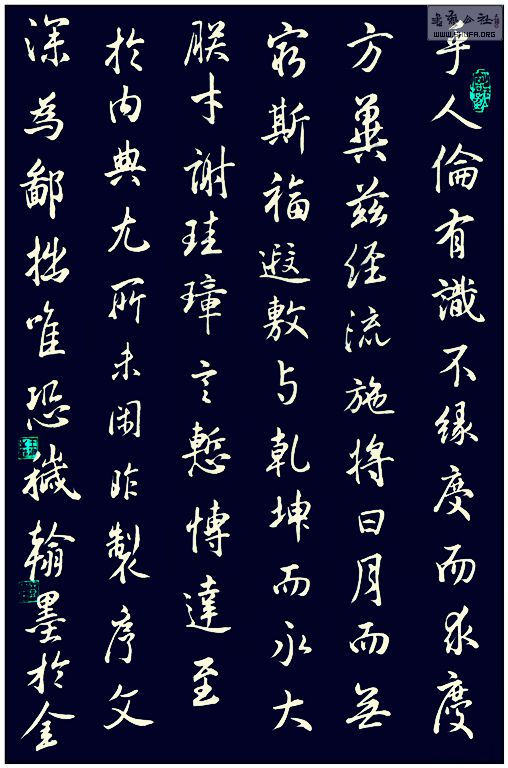 乎人倫有識不緣慶而求慶
方冀茲經流施將日月而無
窮斯福遐敷与乾坤而永大
朕才謝珪璋言慙博達至
於內典尤所未閑昨製序文
深為鄙拙唯恐穢翰墨於金
書法公社
WWW.SHUFA.ORG